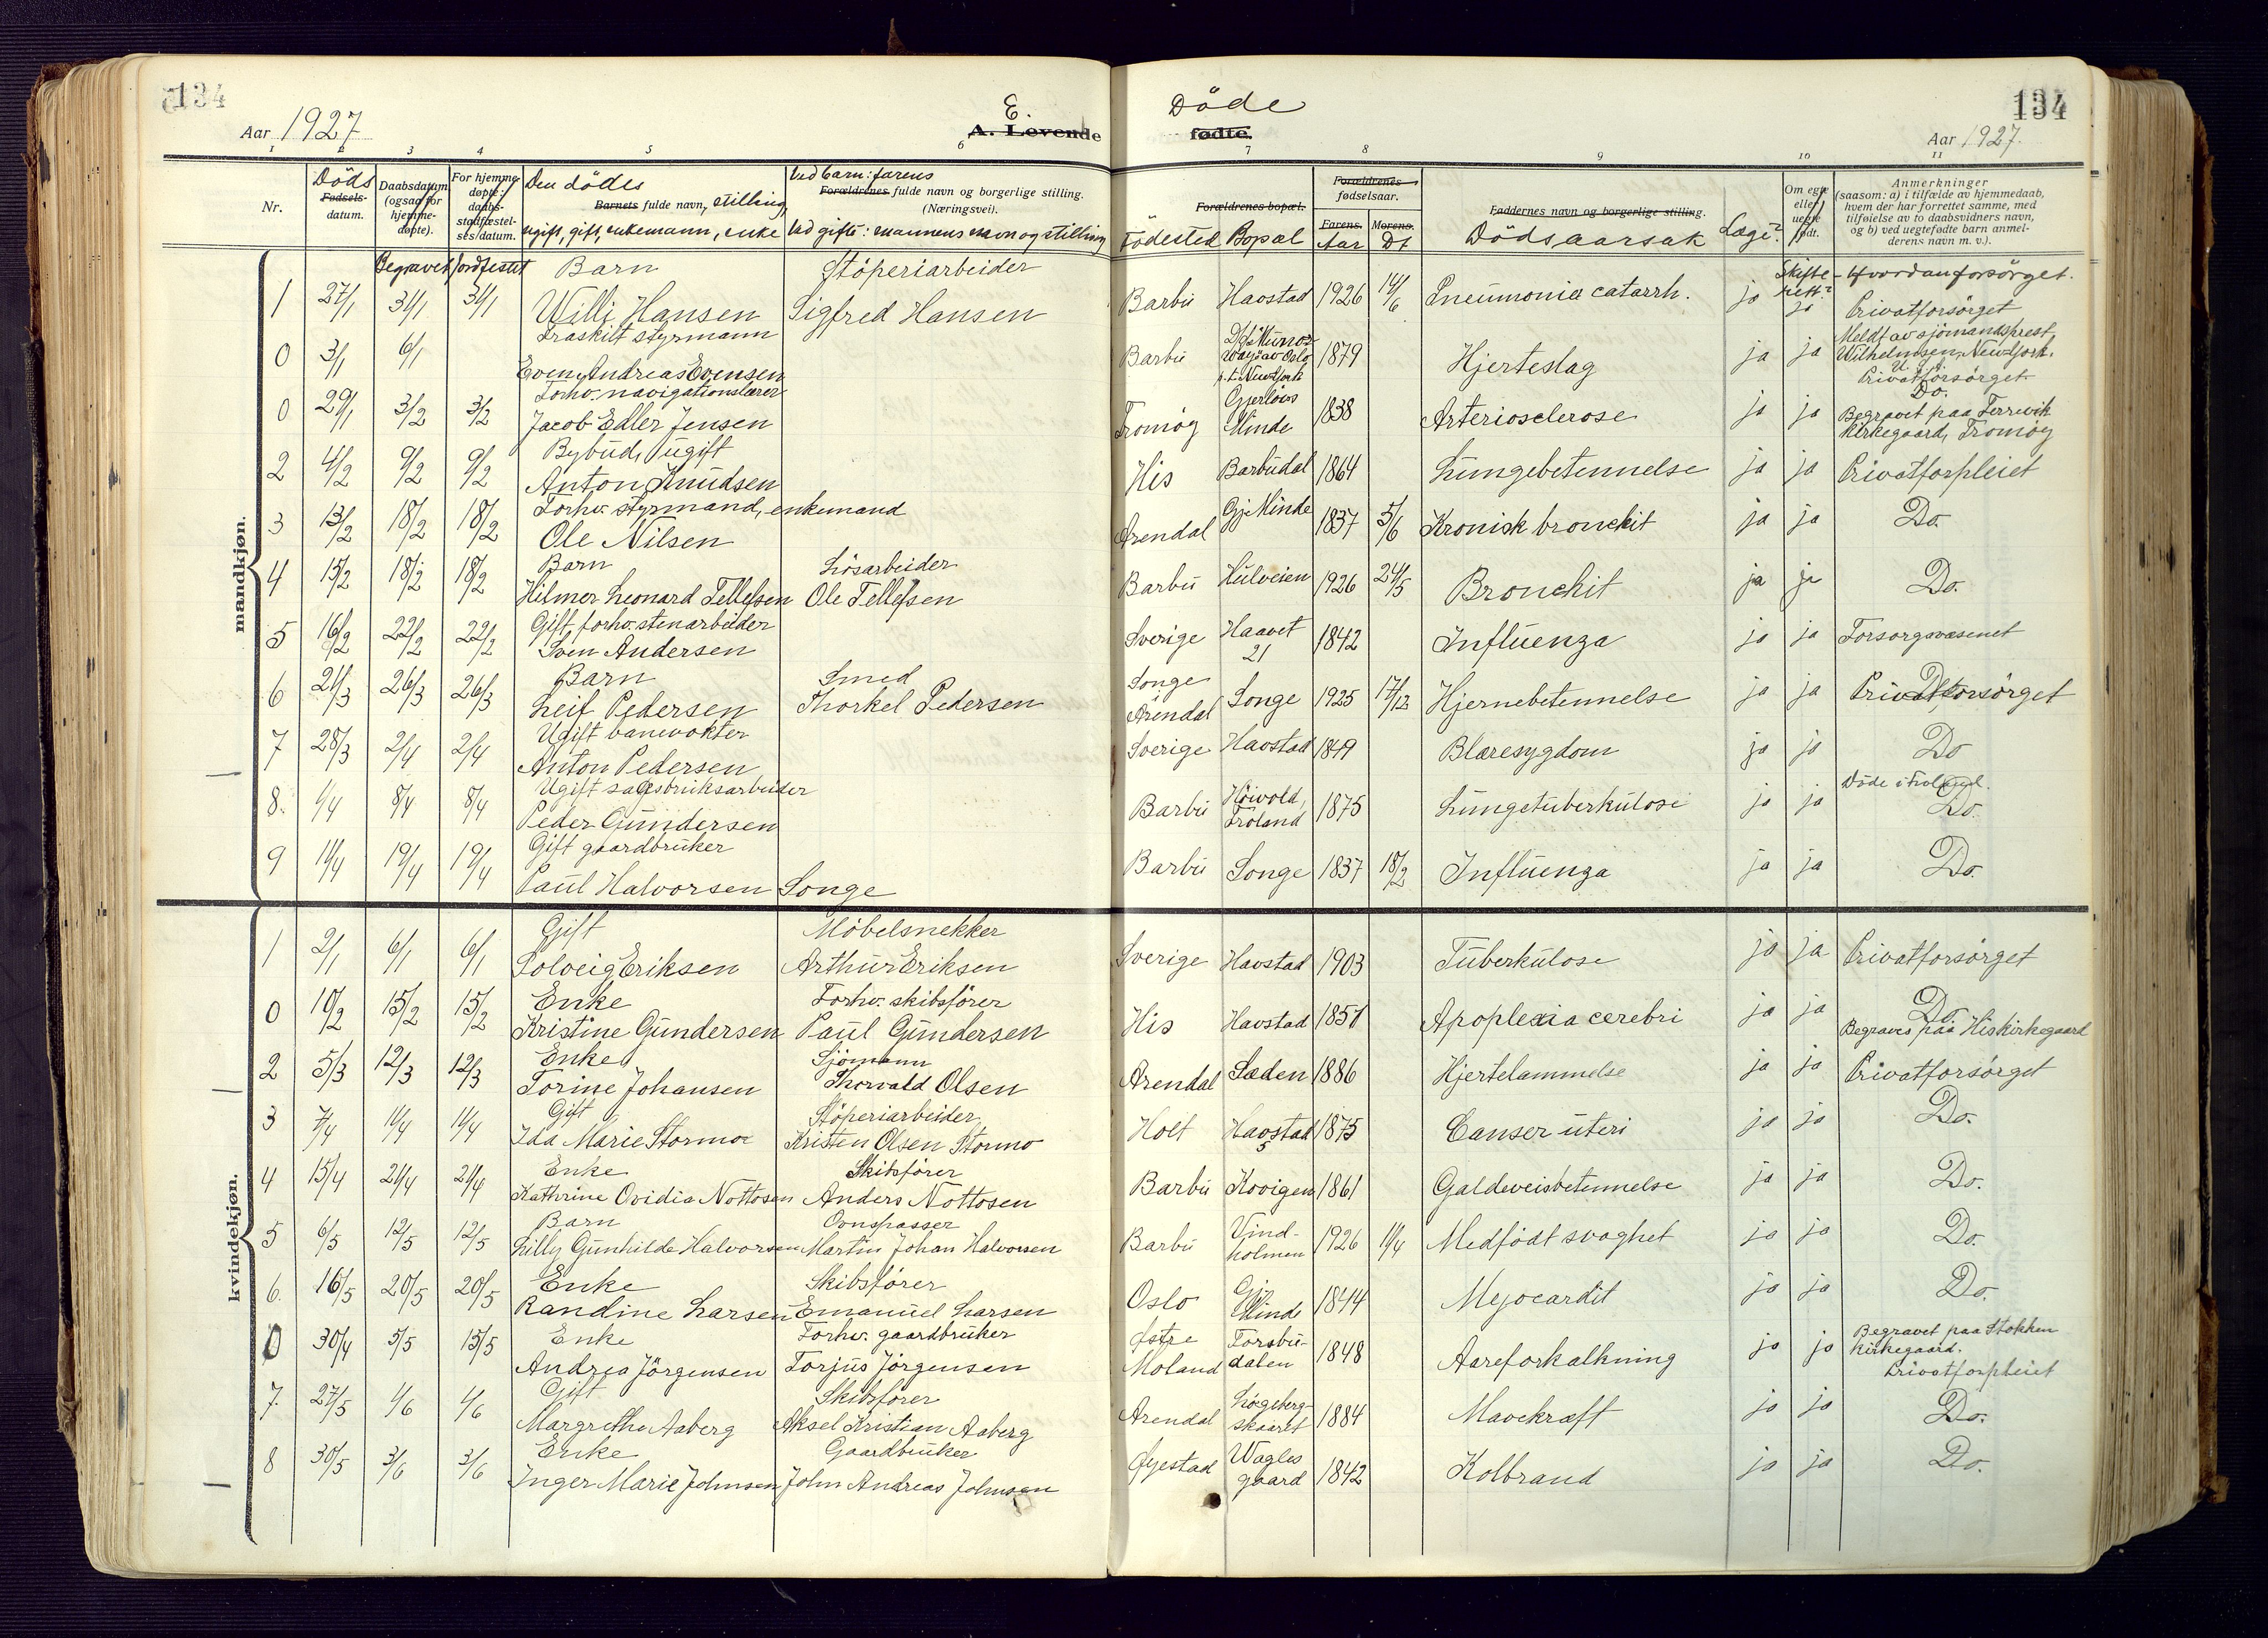 134
134
Aar 1927
E.
Døde
A. Levende
fødte.
Aar 1927.
1 2 3 4 5 6 7 8 9 10 11
Nr.
Døds
Fødsels-
datum.
Daabsdatum
(ogsaa for
hjemme-
døpte).
Begravet
For hjemme-
døpte:
daabs-
stadfæstel-
ses datum.
Jordfestet
Den dødes
Barnets fulde navn, stilling,
ugift, gift, enkemann, enke
Ved barn: farens
Forældrenes fulde navn og borgerlige stilling.
(Næringsvei).
Ved gifte: mannens navn og stilling
Forældrenes bopæl.
Fødested Bopæl
Forældrenes
fødselsaar.
Farens. Morens.
Aar Dt
Faddernes navn og borgerlige stilling.
Dødsaarsak
Læge?
Om egte
eller
uegte
født.
Skifte-
rett?
Anmerkninger
(saasom: a) i tilfælde av hjemmedaab,
hvem der har forrettet samme, med
tilføielse av to daabsvidners navn,
og b) ved uegtefødte barn anmel-
derens navn m. v.).
Hvordan forsørget.
mandkjøn.
Barn Støperiarbeider
1 27/1 31/1 31/1 Willi Hansen Sigfred Hansen Barbu Havstad 1926 14/6 Pneumonia catarrh. ja ja Privatforsørget
Fraskilt styrmann
0 3/1 6/1 Even Andreas Evensen Barbu av Oslo p.t. New York 1879 Hjerteslag ja ja Meldt av sjømandsprest
Wilhelmsen, New York.
Privatforsørget.
Forhv. navigationslærer
0 29/1 3/2 3/2 Jacob Edler Jensen Tromøy Gjerløvs Minde 1838 Arteriosclerose ja ja Do.
Begravet paa Færvik
Kirkegaard, Tromøy
Bybud, ugift
2 4/2 9/2 9/2 Anton Knudsen His Barbudal 1864 Lungebetennelse ja ja Privatforpleiet
Forhv. styrmand, enkemand
3 13/2 18/2 18/2 Ole Nilsen Arendal Gj. Minde 1837 5/6 Kronisk bronchit ja ja Do.
Barn Løsarbeider
4 15/2 18/2 18/2 Hilmer Leonard Tellefsen Ole Tellefsen Barbu Hulveien 1926 24/5 Bronchit ja ja Do.
Gift forhv. stenarbeider
5 16/2 22/2 22/2 Sven Andersen Sverige Haavet 21 1842 Influenza ja ja Forsorgsvæsenet
Barn Smed
6 21/3 26/3 26/3 Leif Pedersen Thorkel Pedersen Songe Arendal Songe 1925 17/12 Hjernebetennelse ja ja Privatforsørget
Ugift banevokter
7 28/3 2/4 2/4 Anton Pedersen Sverige Havstad 1849 Blæresygdom ja ja Do
Ugift sagbruksarbeider
8. 1/4 8/4 8/4 Peder Gundersen Barbu Høivold, Froland 1875 Lungetuberkulose ja ja Døde i Froland.
Do.
Gift gaardbruker
9 11/4 19/4 19/4 Paul Halvorsen Songe Barbu Songe 1837 18/2 Influenza ja ja Do.
kvindekjøn.
Gift Møbelsnekker
1 2/1 6/1 6/1 Solveig Eriksen Arthur Eriksen Sverige Havstad 1903 Tuberkulose ja ja Privatforsørget
Enke Forhv. skibsfører
0 10/2 15/2 15/2 Kristine Gundersen Paul Gundersen His Havstad 1857 Apoplexia cerebri ja ja Do.
Begraves paa His kirkegaard
Enke Sjømann
2 5/3 12/3 12/3 Torine Johansen Thorvald Olsen Arendal Sæden 1886 Hjertelammelse ja ja Privatforsørget
Gift Støperiarbeider
3 7/4 11/4 11/4 Ida Marie Stormo Kristen Olsen Stormo Holt Havstad 5 1875 Canser uteri ja ja Do.
Enke Skibsfører
4 15/4 21/4 21/4 Kathrine Ovidia Nottosen Anders Nottosen Barbu Kovigen 1861 Galdeveisbetennelse ja ja Do.
Barn Ovnspasser
5 6/5 12/5 12/5 Lilly Gunhilde Halvorsen Martin Johan Halvorsen Barbu Vind-
holmen 1926 11/4 Medfødt svaghet ja ja Do.
Enke Skibsfører
6. 16/5 20/5 20/5 Randine Larsen Emanuel Larsen Oslo Gj. Minde 1844 Myocardit ja ja Do.
Enke Forhv. gaardbruker
0 30/4 5/5 15/5 Andrea Jørgensen Torjus Jørgensen Østre Moland Torsbu-
dalen 1848 Aareforkalkning ja ja Begravet paa Stokken
kirkegaard.
Privatforpleiet
Gift Skibsfører
7. 27/5 1/6 1/6 Margrethe Aaberg Aksel Kristian Aaberg Arendal Løgeberg-
skaaret 1884 Mavekræft ja ja Do.
Enke Gaardbruker
8 30/5 3/6 3/6 Inger Marie Johnsen John Andreas Johnsen Øyestad Wagles
gaard 1842 Kolbrand ja ja Do.